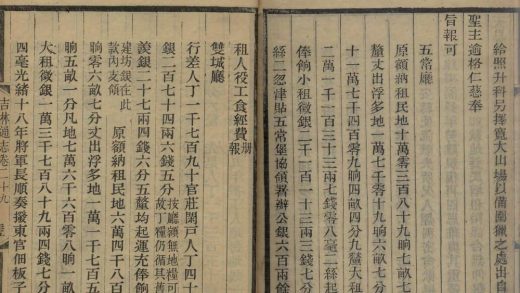 給照升科另擇寬大山場以備圍獵之處出自
聖主逾格仁慈奉
旨報可
五常廳
原額納租民地十萬零三百八十九晌七畝
釐丈出浮多地一萬七千零十九晌六畝七分
十一萬七千四百零九晌四畝四分九釐大租
二萬一千一百三十三兩七錢零八毫二絲起
俸餉小租徵銀二千一百一十三兩三錢七分
絲二忽津貼五常堡協領署辦公銀六百兩餘
租人役工食經費報冊
雙城廳
行差人丁一千七百九十官莊閑戶人丁四十
銀二百七十四兩六錢五分按廳領無地糧可故丁糧仍循其舊
羨銀二十七兩四錢六分五釐均起運充俸餉
建坊銀在此款內支領 原額納租民地六萬四千八百
晌零六畝七分丈出浮多地一萬一千七百五
晌五畝一分凡地七萬六千六百零八晌一畝
大租徵銀一萬三千七百八十九兩四錢五分
四毫光緒十八年將軍長順奏撥東官佃板子
吉林通志卷二十九